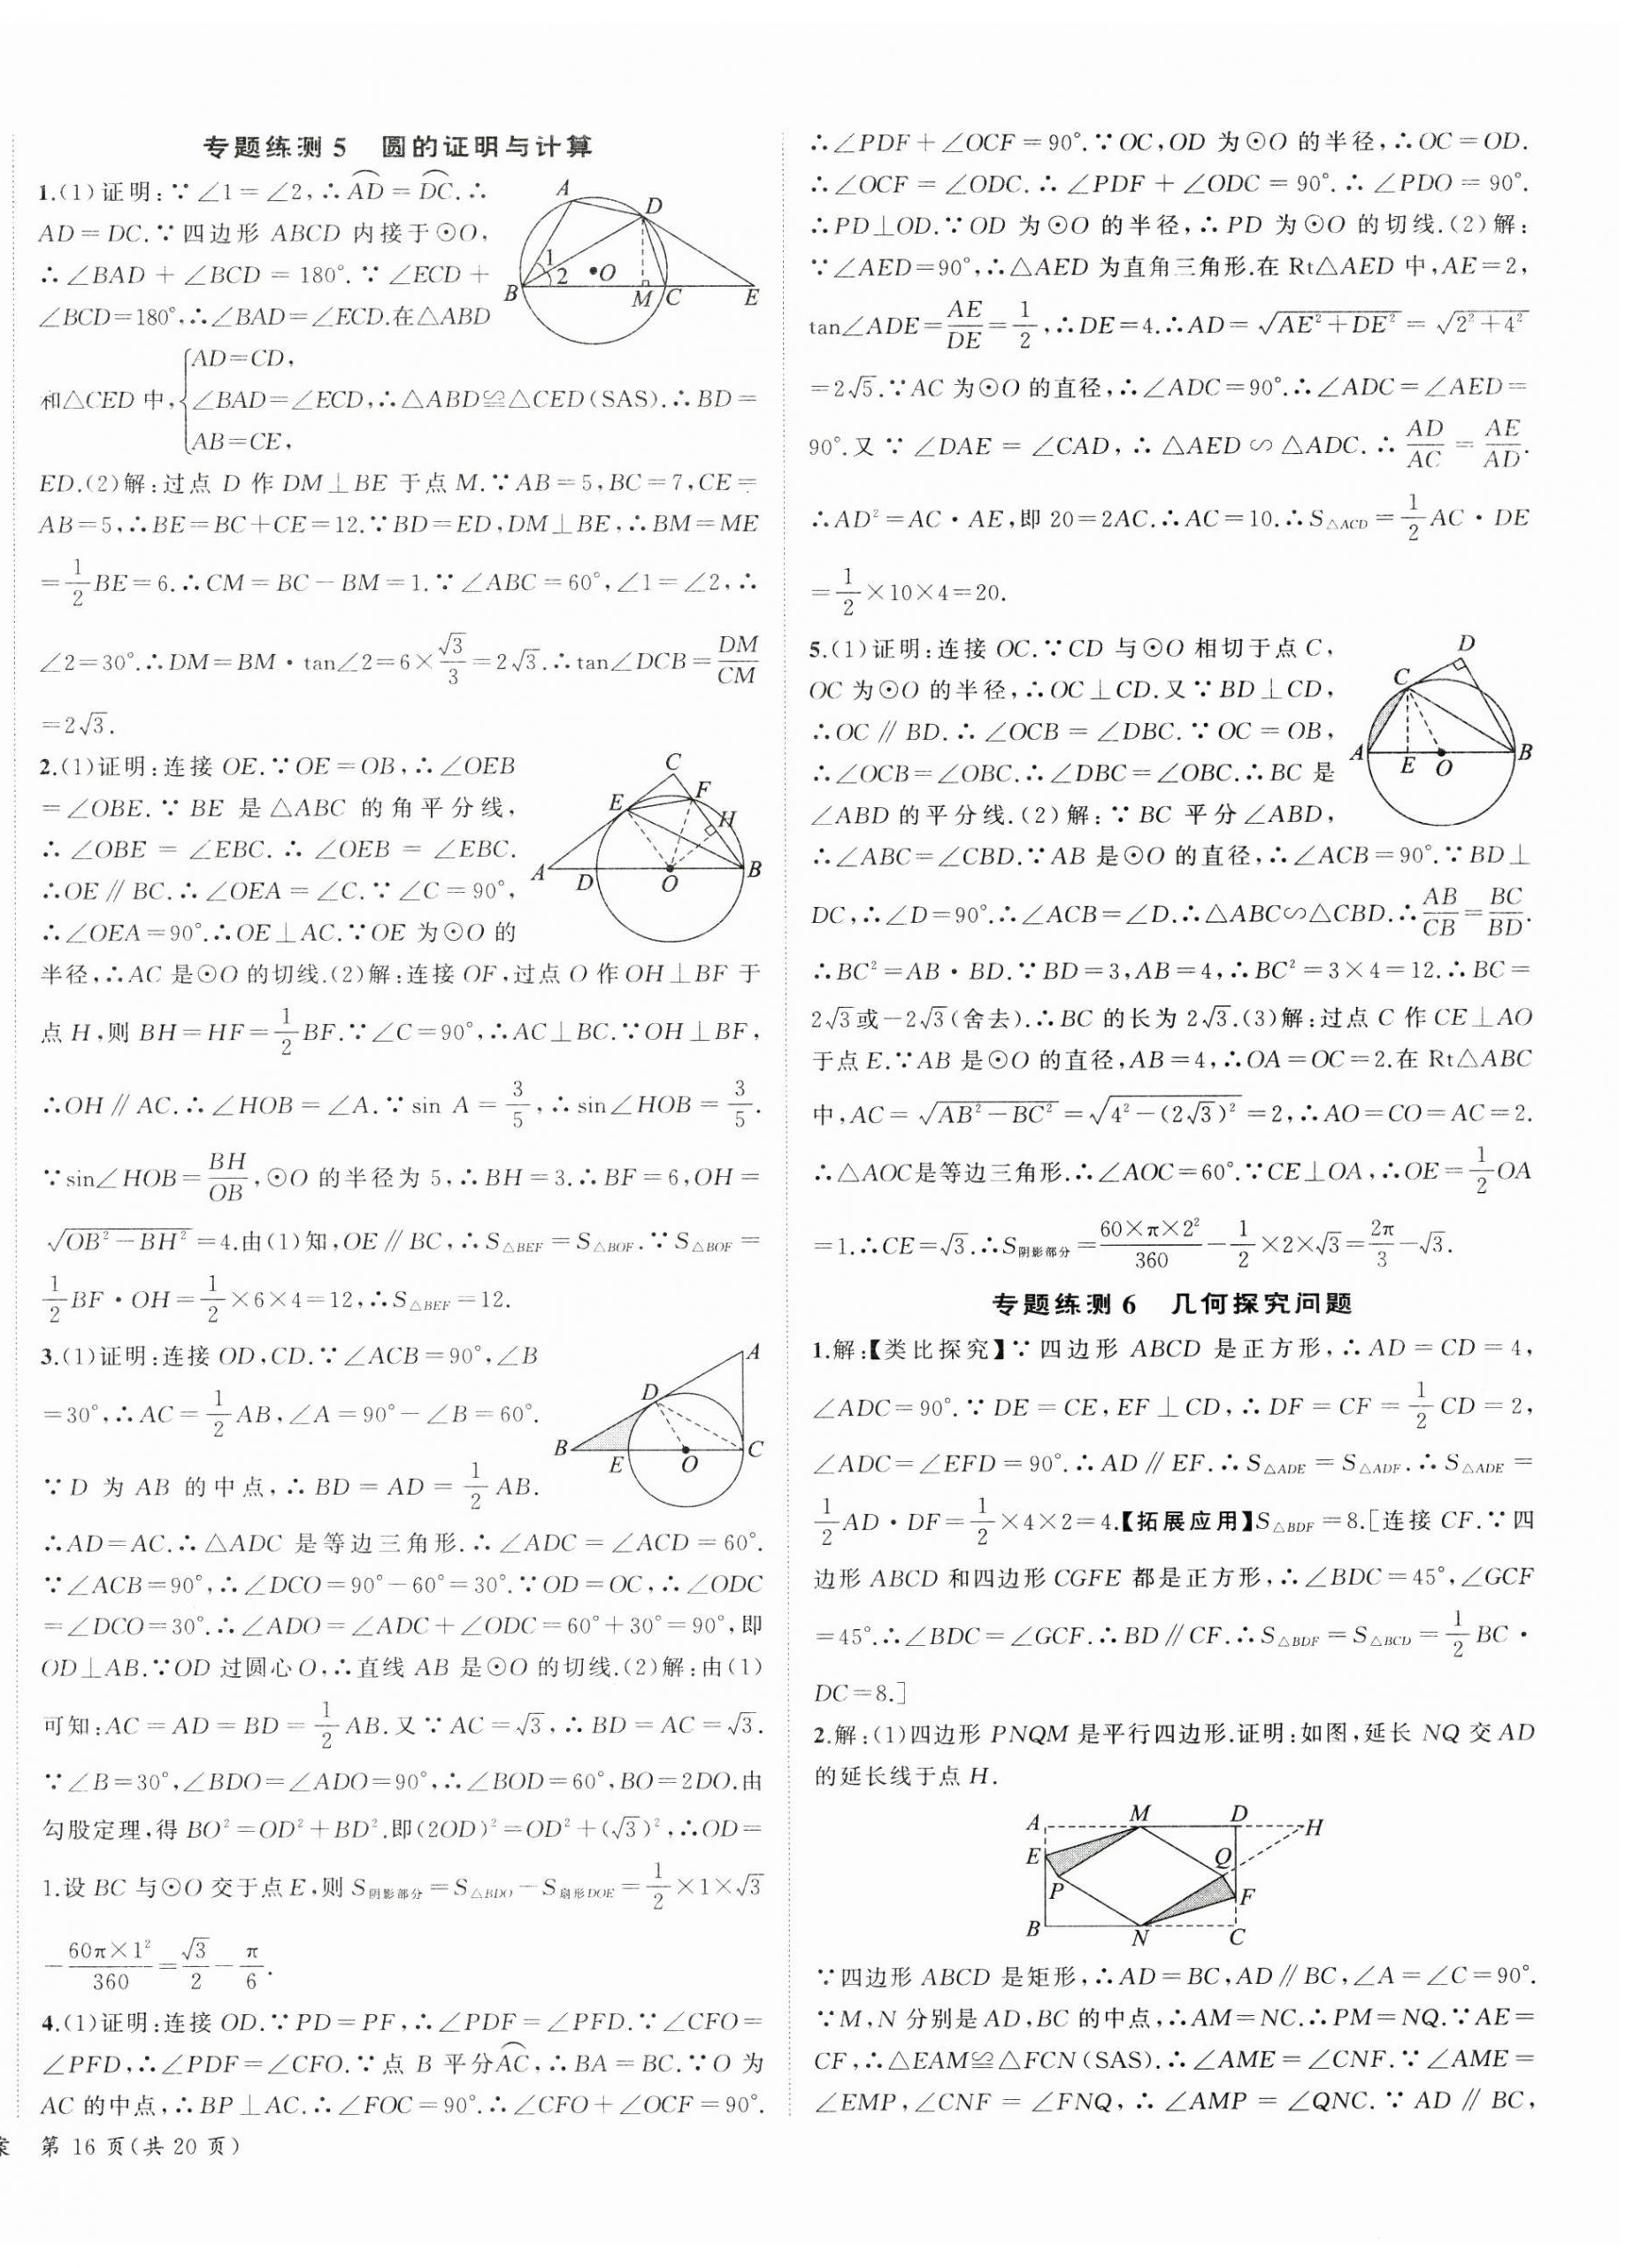 专题练测5　圆的证明与计算
1.(1)证明:∵∠1=∠2,∴AD⌒=DC⌒.∴
AD=DC.∵四边形 ABCD 内接于⊙O,
∴∠BAD+∠BCD=180°.∵∠ECD+
∠BCD=180°,∴∠BAD=∠ECD.在△ABD
和△CED 中,{AD=CD, ∠BAD=∠ECD, AB=CE, ∴△ABD≌△CED(SAS).∴BD=
ED.(2)解:过点 D 作 DM⊥BE 于点 M.∵AB=5,BC=7,CE=
AB=5,∴BE=BC+CE=12.∵BD=ED,DM⊥BE,∴BM=ME
=1/2BE=6.∴CM=BC-BM=1.∵∠ABC=60°,∠1=∠2,∴
∠2=30°.∴DM=BM·tan∠2=6×√3/3=2√3.∴tan∠DCB=DM/CM
=2√3.
A
D
1
2
O
B
M
C
E
2.(1)证明:连接 OE.∵OE=OB,∴∠OEB
=∠OBE.∵BE 是△ABC 的角平分线,
∴∠OBE=∠EBC.∴∠OEB=∠EBC.
∴OE∥BC.∴∠OEA=∠C.∵∠C=90°,
∴∠OEA=90°.∴OE⊥AC.∵OE 为⊙O 的
半径,∴AC 是⊙O 的切线.(2)解:连接 OF,过点 O 作 OH⊥BF 于
点 H,则 BH=HF=1/2BF.∵∠C=90°,∴AC⊥BC.∵OH⊥BF,
∴OH∥AC.∴∠HOB=∠A.∵sin A=3/5,∴sin∠HOB=3/5.
∵sin∠HOB=BH/OB,⊙O 的半径为 5,∴BH=3.∴BF=6,OH=
√(OB²-BH²)=4.由(1)知,OE∥BC,∴S△BEF=S△BOF.∵S△BOF=
1/2BF·OH=1/2×6×4=12,∴S△BEF=12.
C
F
E
H
A
D
O
B
3.(1)证明:连接 OD,CD.∵∠ACB=90°,∠B
=30°,∴AC=1/2AB,∠A=90°-∠B=60°.
∵D 为 AB 的中点,∴BD=AD=1/2AB.
∴AD=AC.∴△ADC 是等边三角形.∴∠ADC=∠ACD=60°.
∵∠ACB=90°,∴∠DCO=90°-60°=30°.∵OD=OC,∴∠ODC
=∠DCO=30°.∴∠ADO=∠ADC+∠ODC=60°+30°=90°,即
OD⊥AB.∵OD 过圆心 O,∴直线 AB 是⊙O 的切线.(2)解:由(1)
可知:AC=AD=BD=1/2AB.又∵AC=√3,∴BD=AC=√3.
∵∠B=30°,∠BDO=∠ADO=90°,∴∠BOD=60°,BO=2DO.由
勾股定理,得 BO²=OD²+BD².即(2OD)²=OD²+(√3)²,∴OD=
1.设 BC 与⊙O 交于点 E,则 S阴影部分=S△BDO-S扇形DOE=1/2×1×√3
-60π×1²/360=√3/2-π/6.
A
D
B
E
O
C
4.(1)证明:连接 OD.∵PD=PF,∴∠PDF=∠PFD.∵∠CFO=
∠PFD,∴∠PDF=∠CFO.∵点 B 平分AC⌒,∴BA=BC.∵O 为
AC 的中点,∴BP⊥AC.∴∠FOC=90°.∴∠CFO+∠OCF=90°.
案　第 16 页(共 20 页)
∴∠PDF+∠OCF=90°.∵OC,OD 为⊙O 的半径,∴OC=OD.
∴∠OCF=∠ODC.∴∠PDF+∠ODC=90°.∴∠PDO=90°.
∴PD⊥OD.∵OD 为⊙O 的半径,∴PD 为⊙O 的切线.(2)解:
∵∠AED=90°,∴△AED 为直角三角形.在 Rt△AED 中,AE=2,
tan∠ADE=AE/DE=1/2,∴DE=4.∴AD=√(AE²+DE²)=√(2²+4²)
=2√5.∵AC 为⊙O 的直径,∴∠ADC=90°.∴∠ADC=∠AED=
90°.又∵∠DAE=∠CAD,∴△AED∽△ADC.∴AD/AC=AE/AD.
∴AD²=AC·AE,即 20=2AC.∴AC=10.∴S△ACD=1/2AC·DE
=1/2×10×4=20.
5.(1)证明:连接 OC.∵CD 与⊙O 相切于点 C,
OC 为⊙O 的半径,∴OC⊥CD.又∵BD⊥CD,
∴OC∥BD.∴∠OCB=∠DBC.∵OC=OB,
∴∠OCB=∠OBC.∴∠DBC=∠OBC.∴BC 是
∠ABD 的平分线.(2)解:∵BC 平分∠ABD,
∴∠ABC=∠CBD.∵AB 是⊙O 的直径,∴∠ACB=90°.∵BD⊥
DC,∴∠D=90°.∴∠ACB=∠D.∴△ABC∽△CBD.∴AB/CB=BC/BD.
∴BC²=AB·BD.∵BD=3,AB=4,∴BC²=3×4=12.∴BC=
2√3或-2√3(舍去).∴BC 的长为 2√3.(3)解:过点 C 作 CE⊥AO
于点 E.∵AB 是⊙O 的直径,AB=4,∴OA=OC=2.在 Rt△ABC
中,AC=√(AB²-BC²)=√(4²-(2√3)²)=2,∴AO=CO=AC=2.
∴△AOC是等边三角形.∴∠AOC=60°.∵CE⊥OA,∴OE=1/2OA
=1.∴CE=√3.∴S阴影部分=60×π×2²/360-1/2×2×√3=2π/3-√3.
D
C
A
E
O
B
专题练测6　几何探究问题
1.解:【类比探究】∵四边形 ABCD 是正方形,∴AD=CD=4,
∠ADC=90°.∵DE=CE,EF⊥CD,∴DF=CF=1/2CD=2,
∠ADC=∠EFD=90°.∴AD∥EF.∴S△ADE=S△ADF.∴S△ADE=
1/2AD·DF=1/2×4×2=4.【拓展应用】S△BDF=8.[连接 CF.∵四
边形 ABCD 和四边形 CGFE 都是正方形,∴∠BDC=45°,∠GCF
=45°.∴∠BDC=∠GCF.∴BD∥CF.∴S△BDF=S△BCD=1/2BC·
DC=8.]
2.解:(1)四边形 PNQM 是平行四边形.证明:如图,延长 NQ 交 AD
的延长线于点 H.
A
M
D
H
E
Q
P
F
B
N
C
∵四边形 ABCD 是矩形,∴AD=BC,AD∥BC,∠A=∠C=90°.
∵M,N 分别是 AD,BC 的中点,∴AM=NC.∴PM=NQ.∵AE=
CF,∴△EAM≌△FCN(SAS).∴∠AME=∠CNF.∵∠AME=
∠EMP,∠CNF=∠FNQ,∴∠AMP=∠QNC.∵AD∥BC,